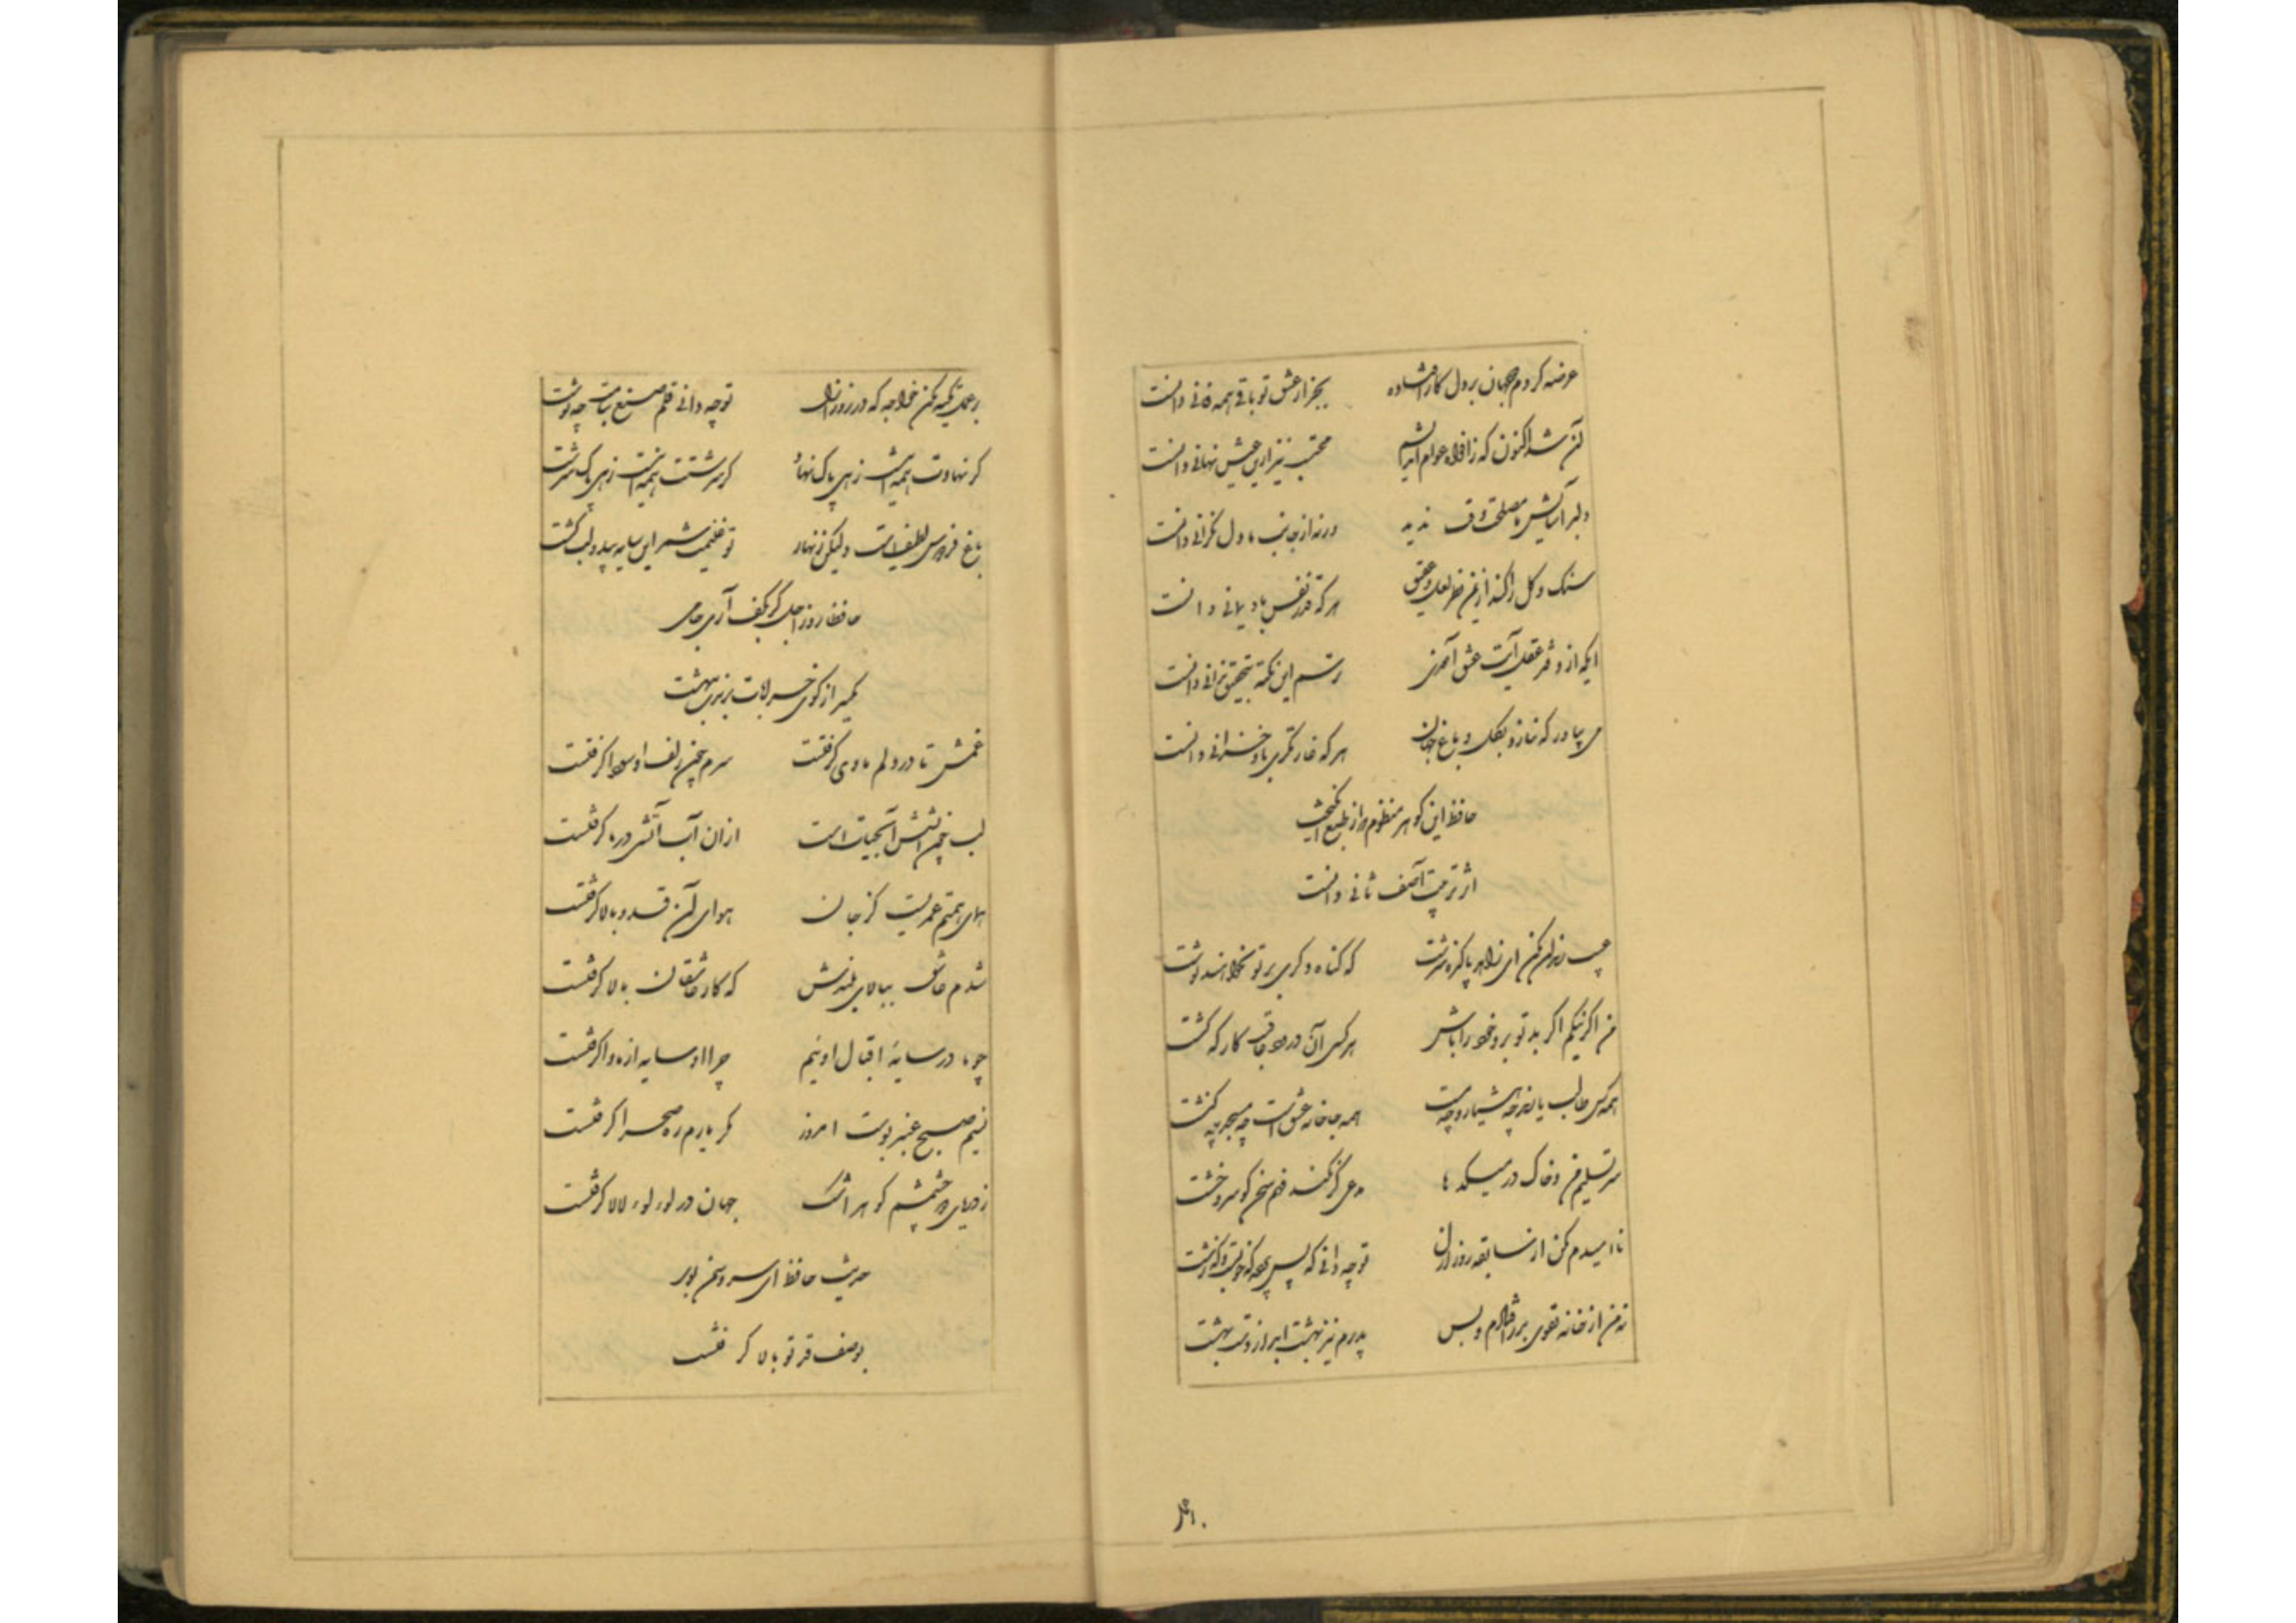 عرضه کردم دو جهان بر دل کار افتاده بجز از عشق تو باقی همه فانی دانست
آن شد اکنون که ز افواه عوام اندیشم محتسب نیز ازین عیش نهانی دانست
دلبر آسایش ما مصلحت وقت ندید ورنه از جانب ما دل نگرانی دانست
سنک و کل را کند از یمن نظر لعل و عقیق هر که قدر نفس باد یمانی دانست
ایکه از دفتر عقل آیت عشق آموزی ترسم این نکته بتحقیق ندانی دانست
می بیاور که ننازد بکل و باغ جهان هر که غارتکری باد خزانی دانست
حافظ این کوهر منظوم که از طبع انکیخت
اثر تربیت آصف ثانی دانست
عیب رندان مکن ای زاهد پاکیزه سرشت که کناه دکری بر تو نخواهند نوشت
من اکر نیکم اکر بد تو برو خود را باش هر کسی آن درود عاقبت کار که کشت
همه کس طالب یارند چه هشیار و چه مست همه جا خانه عشق است چه مسجد چه کنشت
سر تسلیم من و خاک در میکدها مدعی کر نکند فهم سخن کو سر و خشت
ناامیدم مکن از سابقه روز ازل تو چه دانی که پس پرده که خوبست و که زشت
نه من از خانه تقوی بدر افتادم و بس پدرم نیز بهشت ابد از دست بهشت
بر عمل تکیه مکن خواجه که در روز ازل تو چه دانی قلم صنع بنامت چه نوشت
کر نهادت همه اینست زهی پاک نهاد کر سرشتت همه اینست زهی پاک سرشت
باغ فردوس لطیف است ولیکن زنهار تو غنیمت شمر این سایه بید و لب کشت
حافظا روز اجل کر بکف آری جامی
یکسر از کوی خرابات برندت ببهشت
غمش تا در دلم ماوی کرفتست سرم چون زلف او سودا کرفتست
لب چون آتشش آب حیات است ازان آب آتشی در ما کرفتست
همای همتم عمریست کز جان هوای آن قد و بالا کرفتست
شدم عاشق ببالای بلندش که کار عاشقان بالا کرفتست
چو ما در سایۀ اقبال اوئیم چرا او سایه از ما وا کرفتست
نسیم صبح عنبر بوست امروز مکر یارم ره صحرا کرفتست
ز دریای دو چشمم کوهر اشک جهان در لوء لوء لالا کرفتست
حدیث حافظ ای سرو سخن بوی
بوصف قد تو بالا کرفتست